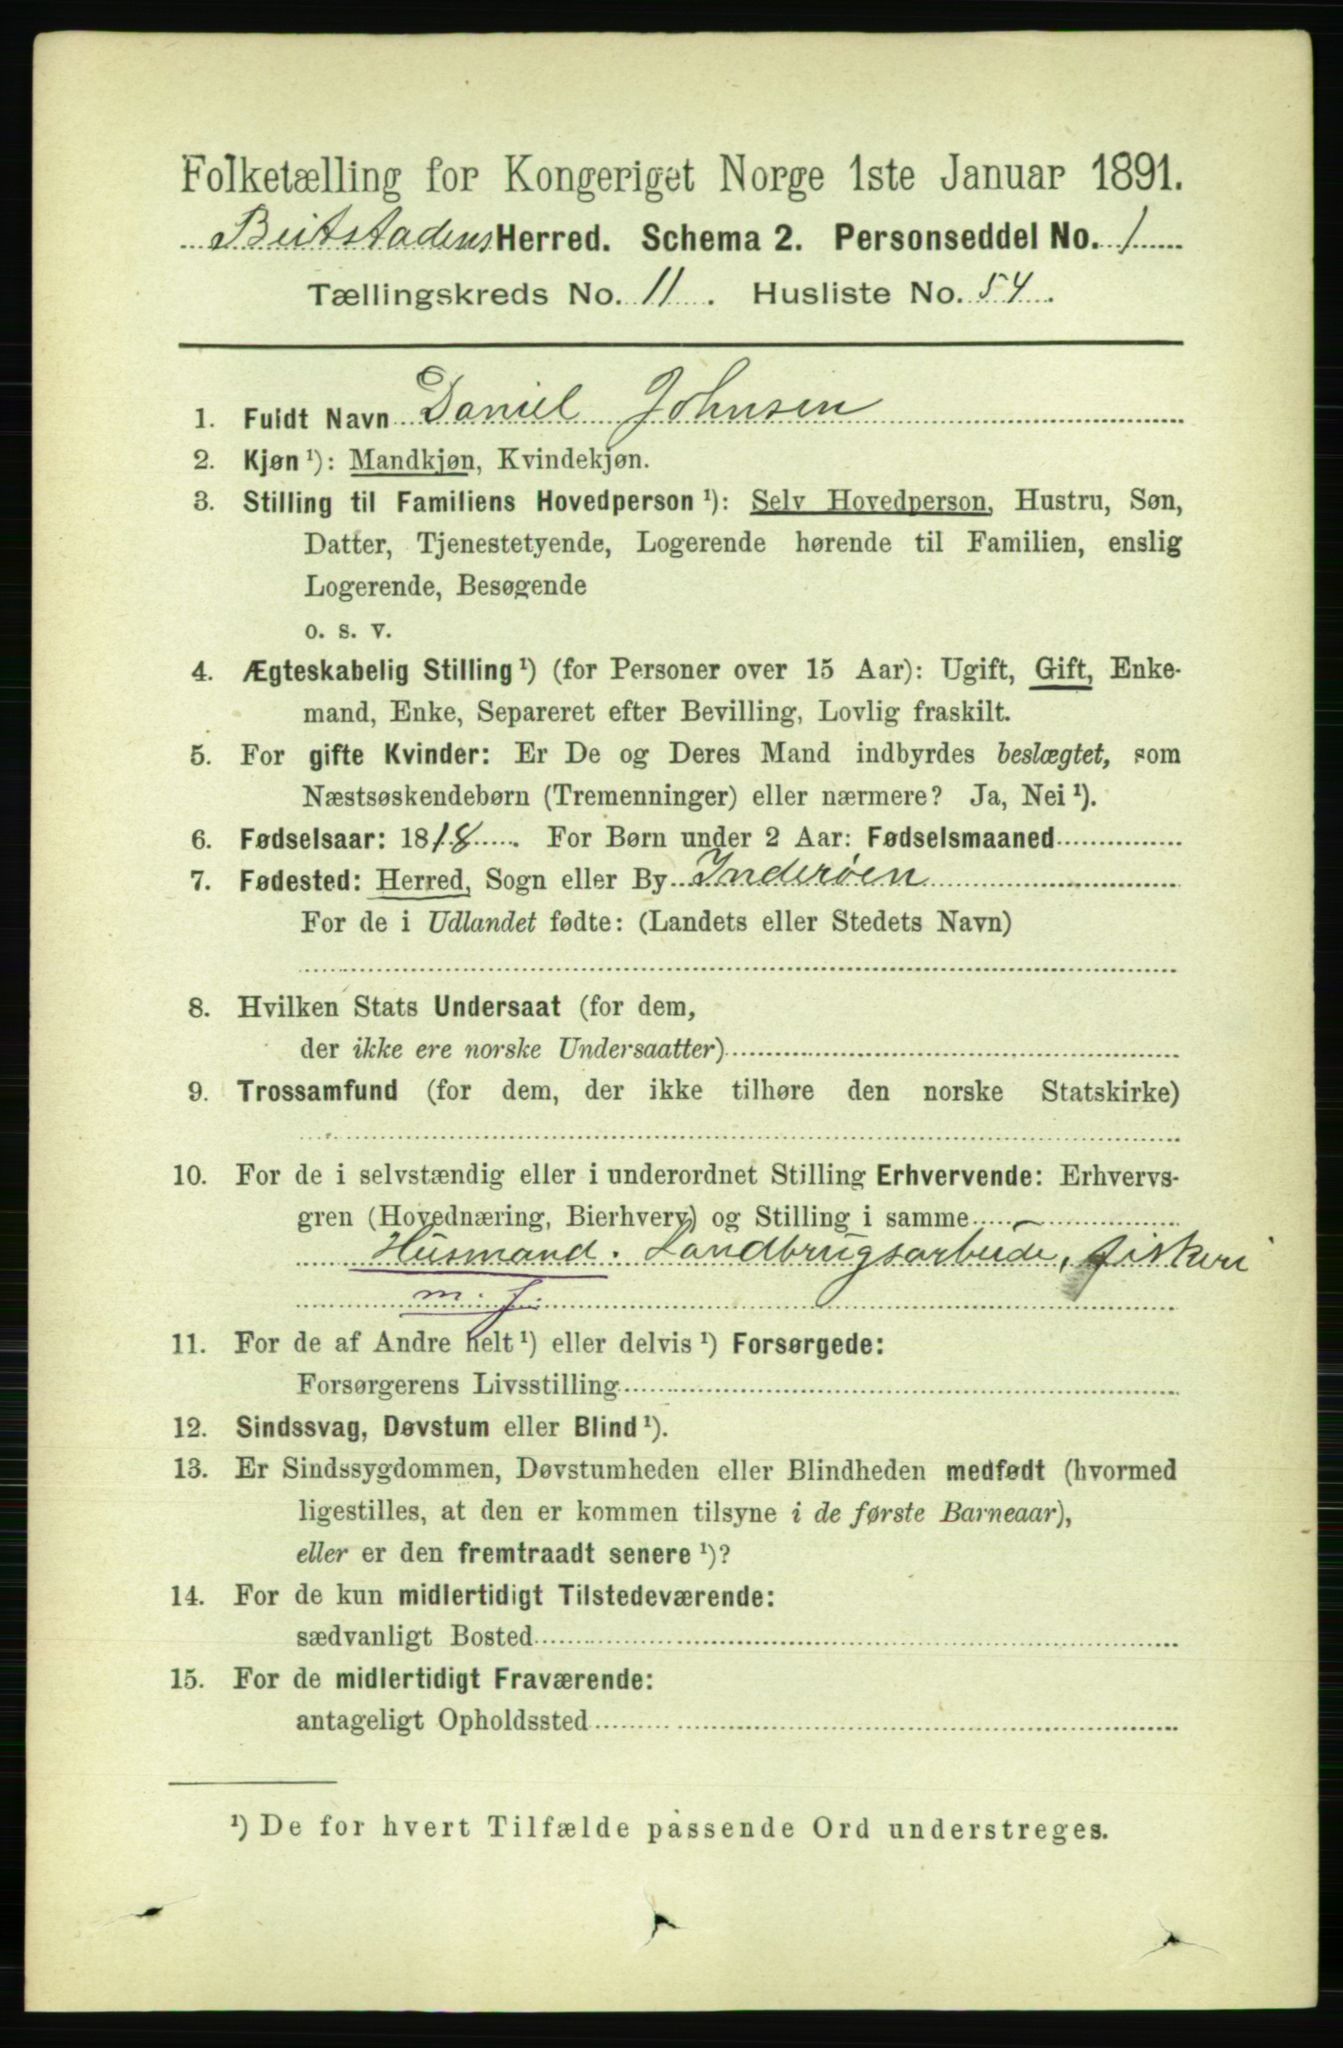 Folketælling for Kongeriget Norge 1ste Januar 1891.
Beitstadens Herred. Schema 2. Personseddel No. 1
Tællingskreds No. 11. Husliste No. 54.
1. Fuldt Navn Daniel Johnsen
2. Kjøn ¹): Mandkjøn, Kvindekjøn.
3. Stilling til Familiens Hovedperson ¹): Selv Hovedperson, Hustru, Søn,
Datter, Tjenestetyende, Logerende hørende til Familien, enslig
Logerende, Besøgende
o. s. v.
4. Ægteskabelig Stilling ¹) (for Personer over 15 Aar): Ugift, Gift, Enke-
mand, Enke, Separeret efter Bevilling, Lovlig fraskilt.
5. For gifte Kvinder: Er De og Deres Mand indbyrdes beslægtet, som
Næstsøskendebørn (Tremenninger) eller nærmere? Ja, Nei ¹).
6. Fødselsaar: 1818. For Børn under 2 Aar: Fødselsmaaned
7. Fødested: Herred, Sogn eller By Inderøen
For de i Udlandet fødte: (Landets eller Stedets Navn)
8. Hvilken Stats Undersaat (for dem,
der ikke ere norske Undersaatter)
9. Trossamfund (for dem, der ikke tilhøre den norske Statskirke)
10. For de i selvstændig eller i underordnet Stilling Erhvervende: Erhvervs-
gren (Hovednæring, Bierhverv) og Stilling i samme
Husmand. Landbrugsarbeide, fiskeri
m. j.
11. For de af Andre helt ¹) eller delvis ¹) Forsørgede:
Forsørgerens Livsstilling
12. Sindssvag, Døvstum eller Blind ¹).
13. Er Sindssygdommen, Døvstumheden eller Blindheden medfødt (hvormed
ligestilles, at den er kommen tilsyne i de første Barneaar),
eller er den fremtraadt senere ¹)?
14. For de kun midlertidigt Tilstedeværende:
sædvanligt Bosted
15. For de midlertidigt Fraværende:
antageligt Opholdssted
¹) De for hvert Tilfælde passende Ord understreges.